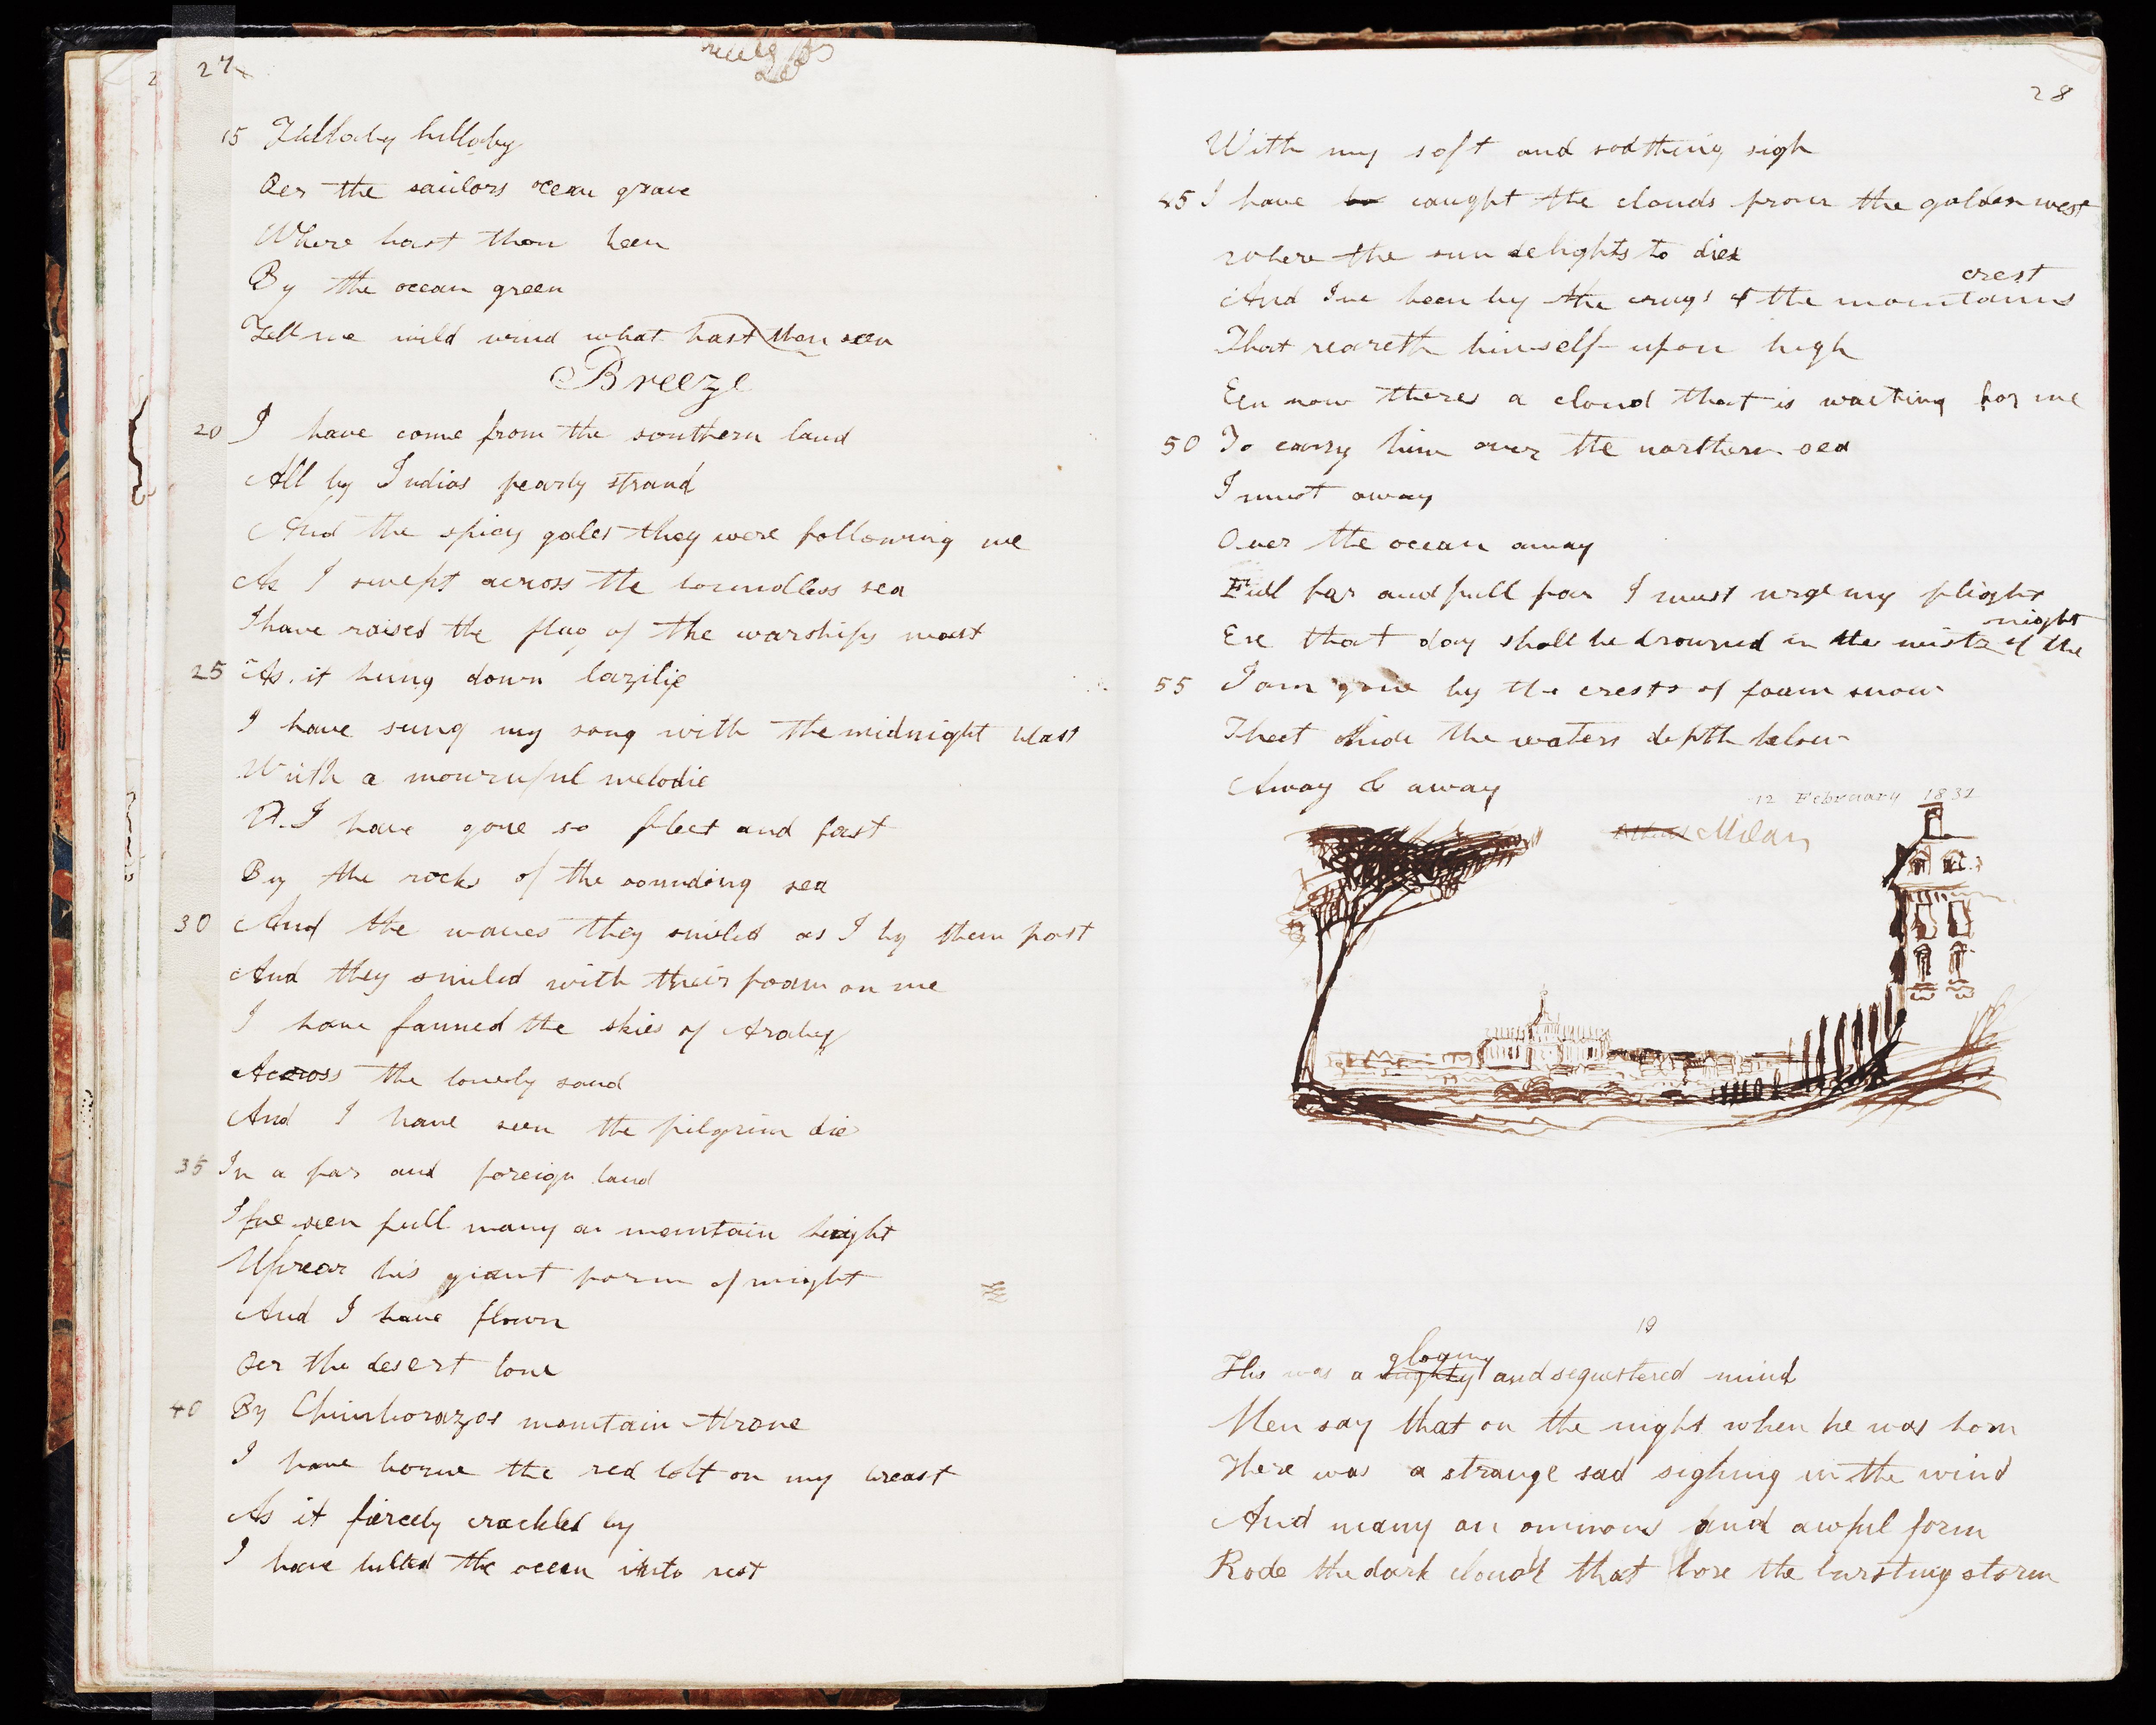 27
15 Hilloby hilloby
Oer the sailors ocean grave
Where hast thou been
By the ocean green
Tell me wild wind what hast thou seen
Breeze
20 I have come from the southern land
All by Indias pearly strand
And the spicy gales they were following me
As I swept across the boundless sea
I have raised the flag of the warships mast
25 As it hung down lazilie
I have sung my song with the midnight blast
With a mournful melodie
I have gone so fleet and fast
By the rocks of the sounding sea
30 And the waves they smiled as I by them past
And they smiled with their foam on me
I have fanned the skies of Araby
Across the lonely sand
And I have seen the pilgrim die
35 In a far and foreign land
Ive seen full many a mountain height
Uprear his giant form of might
And I have flown
Oer the desert lone
40 By Chimborazos mountain throne
I have borne the red bolt on my breast
As it fiercely crackled by
I have lulled the ocean into rest
28
With my soft and soothing sigh
45 I have caught the clouds from the golden west
Where the sun delights to die
And Ive been by the crags & the mountains crest
That reareth himself upon high
Een now theres a cloud that is waiting for me
50 To carry him over the northern sea
I must away
Over the ocean away
Full far and full far I must urge my flight
Ere that day shall be drowned in the mists of the night
55 I am gone by the crests of foam snow
That hide the waters depth below
Away & away
12 February 1832
Milan
19
His was a mighty gloomy and sequestered mind
Men say that on the night when he was born
There was a strange sad sighing in the wind
And many an ominous and awful form
Rode the dark clouds that bore the bursting storm